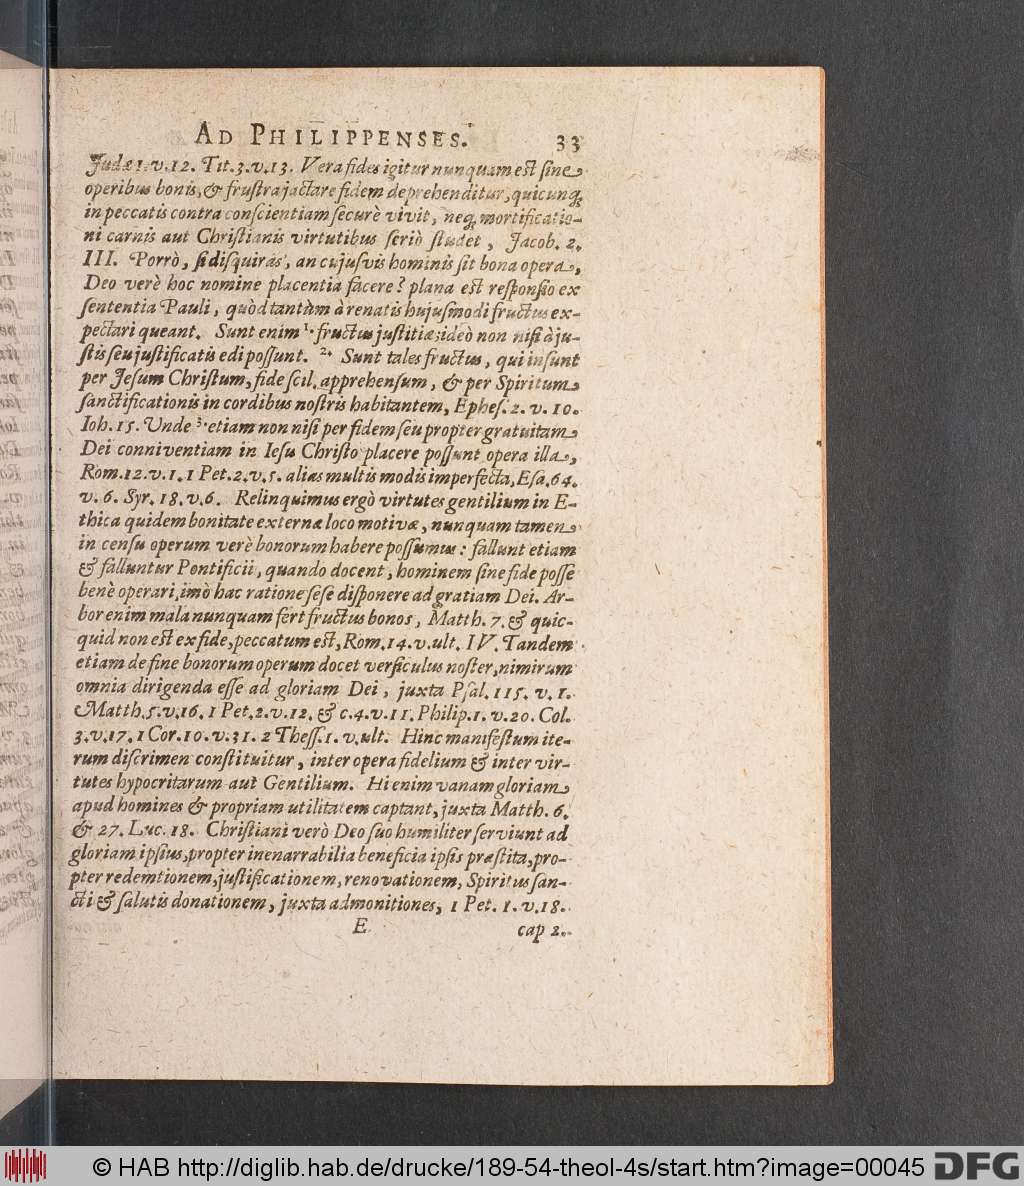 AD PHILIPPENSES. 33
Judæ 1. v. 12. Tit. 3. v. 13. Vera fides igitur nunquam est sine
operibus bonis, & frustra jactare fidem deprehenditur, quicunq;
in peccatis contra conscientiam securè vivit, neq; mortificatio-
ni carnis aut Christianis virtutibus seriò studet, Jacob. 2.
III. Porrò, si disquiras, an cujusvis hominis sit bona opera,
Deo verè hoc nomine placentia facere? plana est responsio ex
sententia Pauli, quòd tantùm à renatis hujusmodi fructus ex-
pectari queant. Sunt enim 1. fructus justitiæ; ideò non nisi à ju-
stis seu justificatis edi possunt. 2. Sunt tales fructus, qui insunt
per Jesum Christum, fide scil. apprehensum, & per Spiritum
sanctificationis in cordibus nostris habitantem, Ephes. 2. v. 10.
Ioh. 15. Unde 3. etiam non nisi per fidem seu propter gratuitam
Dei conniventiam in Iesu Christo placere possunt opera illa,
Rom. 12. v. 1. 1 Pet. 2. v. 5. alias multis modis imperfecta, Esa. 64.
v. 6. Syr. 18. v. 6. Relinquimus ergò virtutes gentilium in E-
thica quidem bonitate externæ loco motivæ, nunquam tamen
in censu operum verè bonorum habere possumus: fallunt etiam
& falluntur Pontificii, quando docent, hominem sine fide posse
benè operari, imò hac ratione sese disponere ad gratiam Dei. Ar-
bor enim mala nunquam fert fructus bonos, Matth. 7. & quic-
quid non est ex fide, peccatum est, Rom. 14. v. ult. IV. Tandem
etiam de fine bonorum operum docet versiculus noster, nimirum
omnia dirigenda esse ad gloriam Dei, juxta Psal. 115. v. 1.
Matth. 5. v. 16. 1 Pet. 2. v. 12. & c. 4. v. 11. Philip. 1. v. 20. Col.
3. v. 17. 1 Cor. 10. v. 31. 2 Thess. 1. v. ult. Hinc manifestum ite-
rum discrimen constituitur, inter opera fidelium & inter vir-
tutes hypocritarum aut Gentilium. Hi enim vanam gloriam
apud homines & propriam utilitatem captant, juxta Matth. 6.
& 27. Luc. 18. Christiani verò Deo suo humiliter serviunt ad
gloriam ipsius, propter inenarrabilia beneficia ipsis præstita, pro-
pter redemtionem, justificationem, renovationem, Spiritus san-
cti & salutis donationem, juxta admonitiones, 1 Pet. 1. v. 18.
E cap 2.
© HAB http://diglib.hab.de/drucke/189-54-theol-4s/start.htm?image=00045 DFG